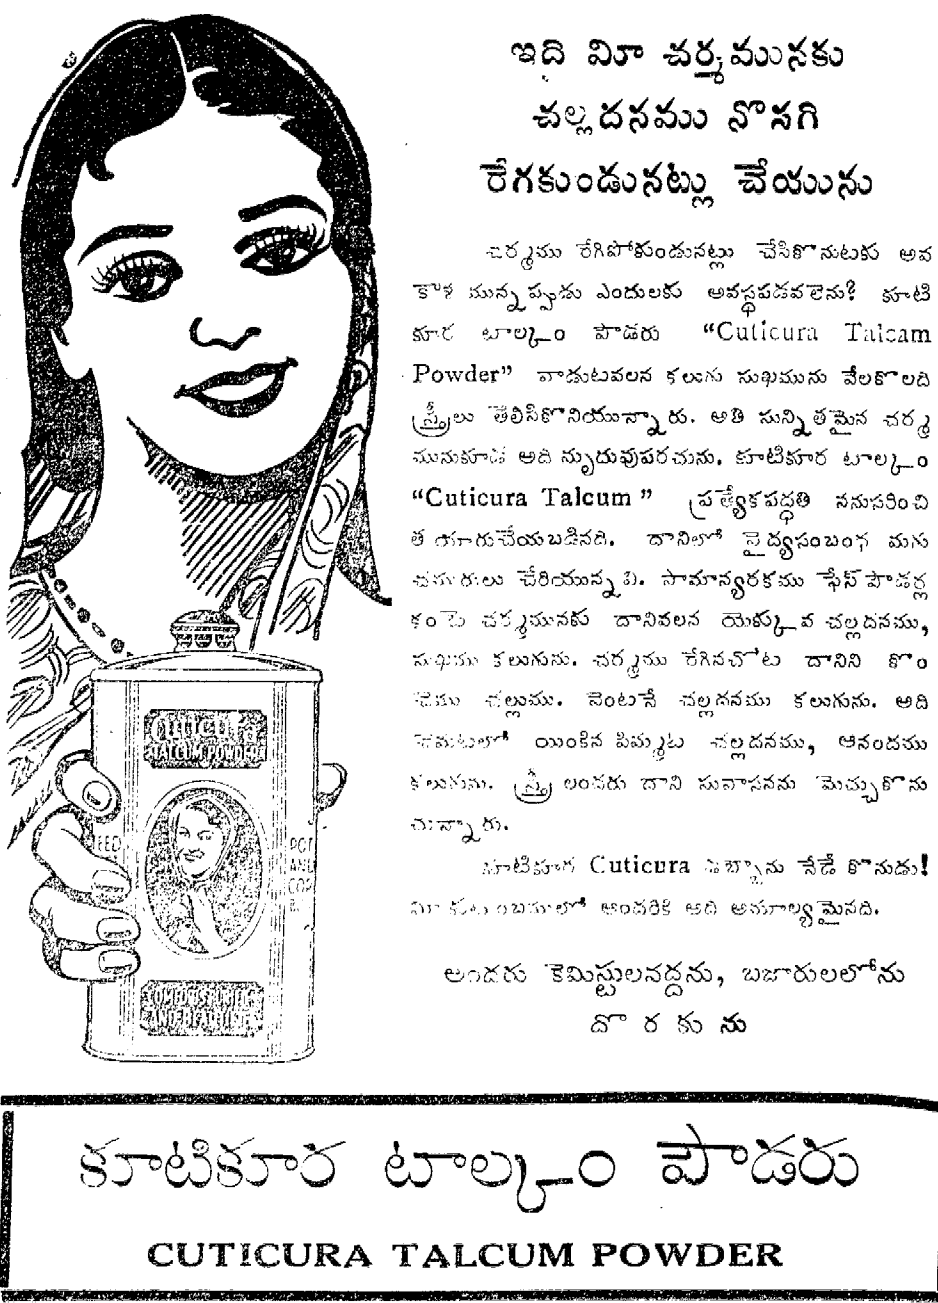 ఇది మీ చర్మమునకు
చల్లదనము నొసగి
రేగకుండునట్లు చేయును
చర్మము రేగిపోకుండునట్లు చేసికొనుటకు అవ
కాశ మున్నప్పుడు ఎందులకు అవస్థపడవలెను? కూటి
కూర టాల్కం పౌడరు “Cuticura Talcam
Powder” వాడుటవలన కలుగు సుఖమును వేలకొలది
స్త్రీలు తెలిసికొనియున్నారు. అతి సున్నితమైన చర్మ
మునుకూడ అది మృదువుపరచును. కూటికూర టాల్కం
“Cuticura Talcum” ప్రత్యేకపద్ధతి ననుసరించి
తయారుచేయబడినది. దానిలో వైద్యసంబంధ మగు
చేరియున్నవి. సామాన్యరకము ఫేస్ పౌడర్ల
కంటె చర్మమునకు దానివలన యెక్కువ చల్లదనము,
సుఖము కలుగును. చర్మము రేగినచోట దానిని కొం
చెము చల్లుము. వెంటనే చల్లదనము కలుగును. అది
చెమటలో యింకిన పిమ్మట చల్లదనము, ఆనందము
కలుగును. స్త్రీ లందరు దాని సువాసనను మెచ్చుకొను
చున్నారు.
కూటికూర Cuticura డబ్బాను నేడే కొనుడు!
మీ కుటుంబములో అందరికి అది అమూల్యమైనది.
అందరు కెమిస్టులవద్దను, బజారులలోను
దొరకును
cuticura
TALCUM POWDER
కూటికూర టాల్కం పౌడరు
CUTICURA TALCUM POWDER